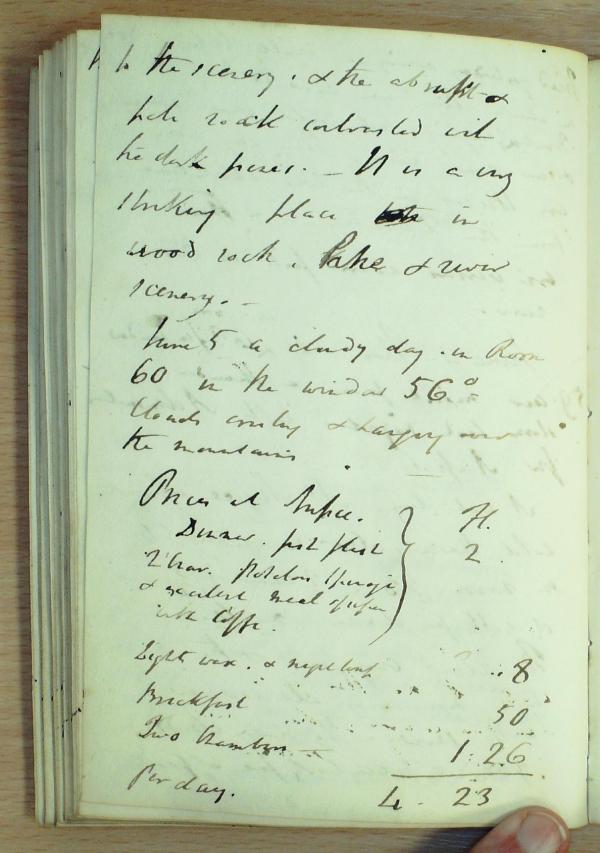 to the scenery. & the abrupt &
pale rock contrasted with
the dark pines. _ It is a very
striking place in
wood rock. lake & river
scenery. _
June 5 a cloudy day. in Room
60 in the window 56°
Clouds & hanging over
the mountains
Prices at
Dinner. H.
2 Char. Potatoes 2
& excellent
with Coffee.
Light wax. & 8
Breakfast 50
Two Chambers _ 1. 26
Per day. 4 - 23